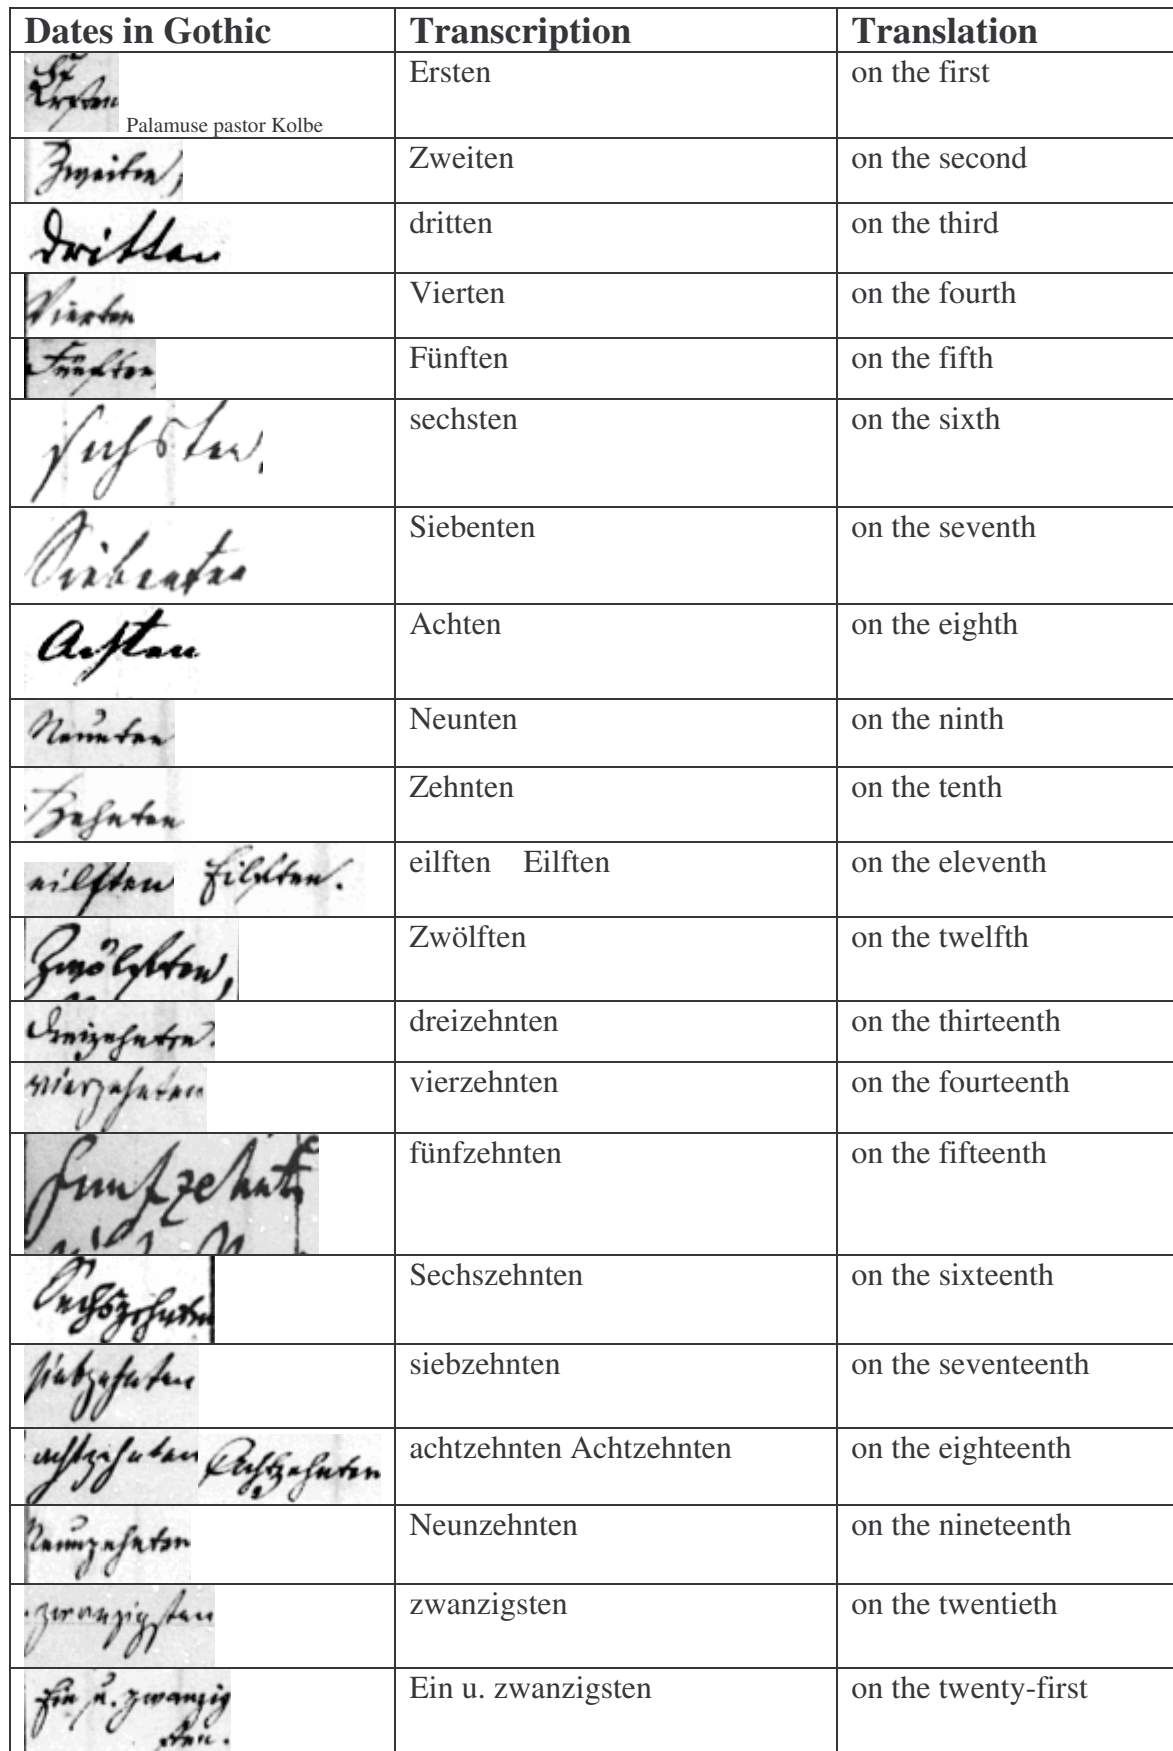 Dates in Gothic Transcription Translation
Ersten Palamuse pastor Kolbe Ersten on the first
Zweiten, Zweiten on the second
dritten dritten on the third
Vierten Vierten on the fourth
Fünften Fünften on the fifth
sechsten, sechsten on the sixth
Siebenten Siebenten on the seventh
Achten Achten on the eighth
Neunten Neunten on the ninth
Zehnten Zehnten on the tenth
eilften Eilften. eilften Eilften on the eleventh
Zwölften, Zwölften on the twelfth
dreizehnten. dreizehnten on the thirteenth
vierzehnten vierzehnten on the fourteenth
fünfzehnt fünfzehnten on the fifteenth
Sechszehnten Sechszehnten on the sixteenth
siebzehnten siebzehnten on the seventeenth
achtzehnten Achtzehnten achtzehnten Achtzehnten on the eighteenth
Neunzehnten Neunzehnten on the nineteenth
zwanzigsten zwanzigsten on the twentieth
Ein u. zwanzig Ein u. zwanzigsten on the twenty-first
sten.